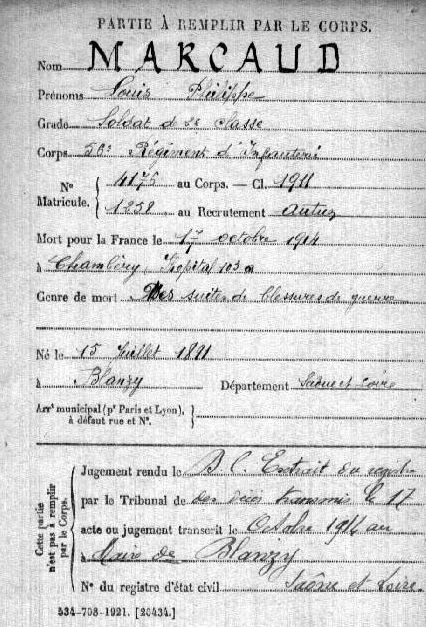 PARTIE À REMPLIR PAR LE CORPS.
Nom MARCAUD
Prénoms Louis Philippe
Grade Soldat de 2e classe
Corps 56e Régiment d'Infanterie
No Matricule. 4175 au Corps. — Cl. 1911
1258 au Recrutement Autun
Mort pour la France le 17 octobre 1914
à Chambéry, Hôpital 103
Genre de mort des suites de blessures de guerre
Né le 15 Juillet 1891
à Blanzy Département Saône et Loire
Arrt municipal (pr Paris et Lyon),
à défaut rue et No.
Cette partie n'est pas à remplir par le Corps.
Jugement rendu le B. C. Extrait du registre
par le Tribunal de des décès transmis le 17
acte ou jugement transcrit le Octobre 1914 au
à Maire de Blanzy
No du registre d'état civil Saône et Loire.
534-708-1921. [26434.]